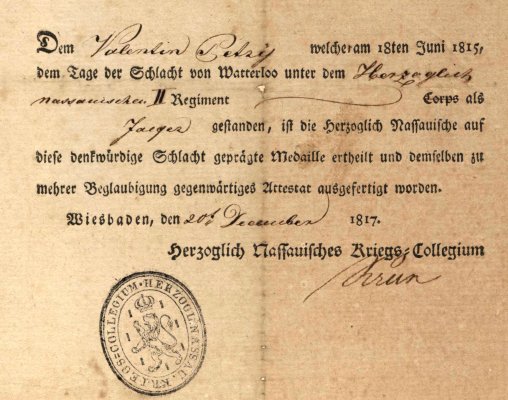 Dem Valentin Petzis welcher am 18ten Juni 1815,
dem Tage der Schlacht von Watterloo unter dem Herzoglich
nassauischen II Regiment Corps als
Jaeger gestanden, ist die Herzoglich Nassauische auf
diese denkwürdige Schlacht geprägte Medaille ertheilt und demselben zu
mehrer Beglaubigung gegenwärtiges Attestat ausgefertigt worden.
Wiesbaden, den 20t December 1817.
Herzoglich Nassauisches Kriegs-Collegium
HERZOGL: NASSAU. KRIEGS=COLLEGIUM